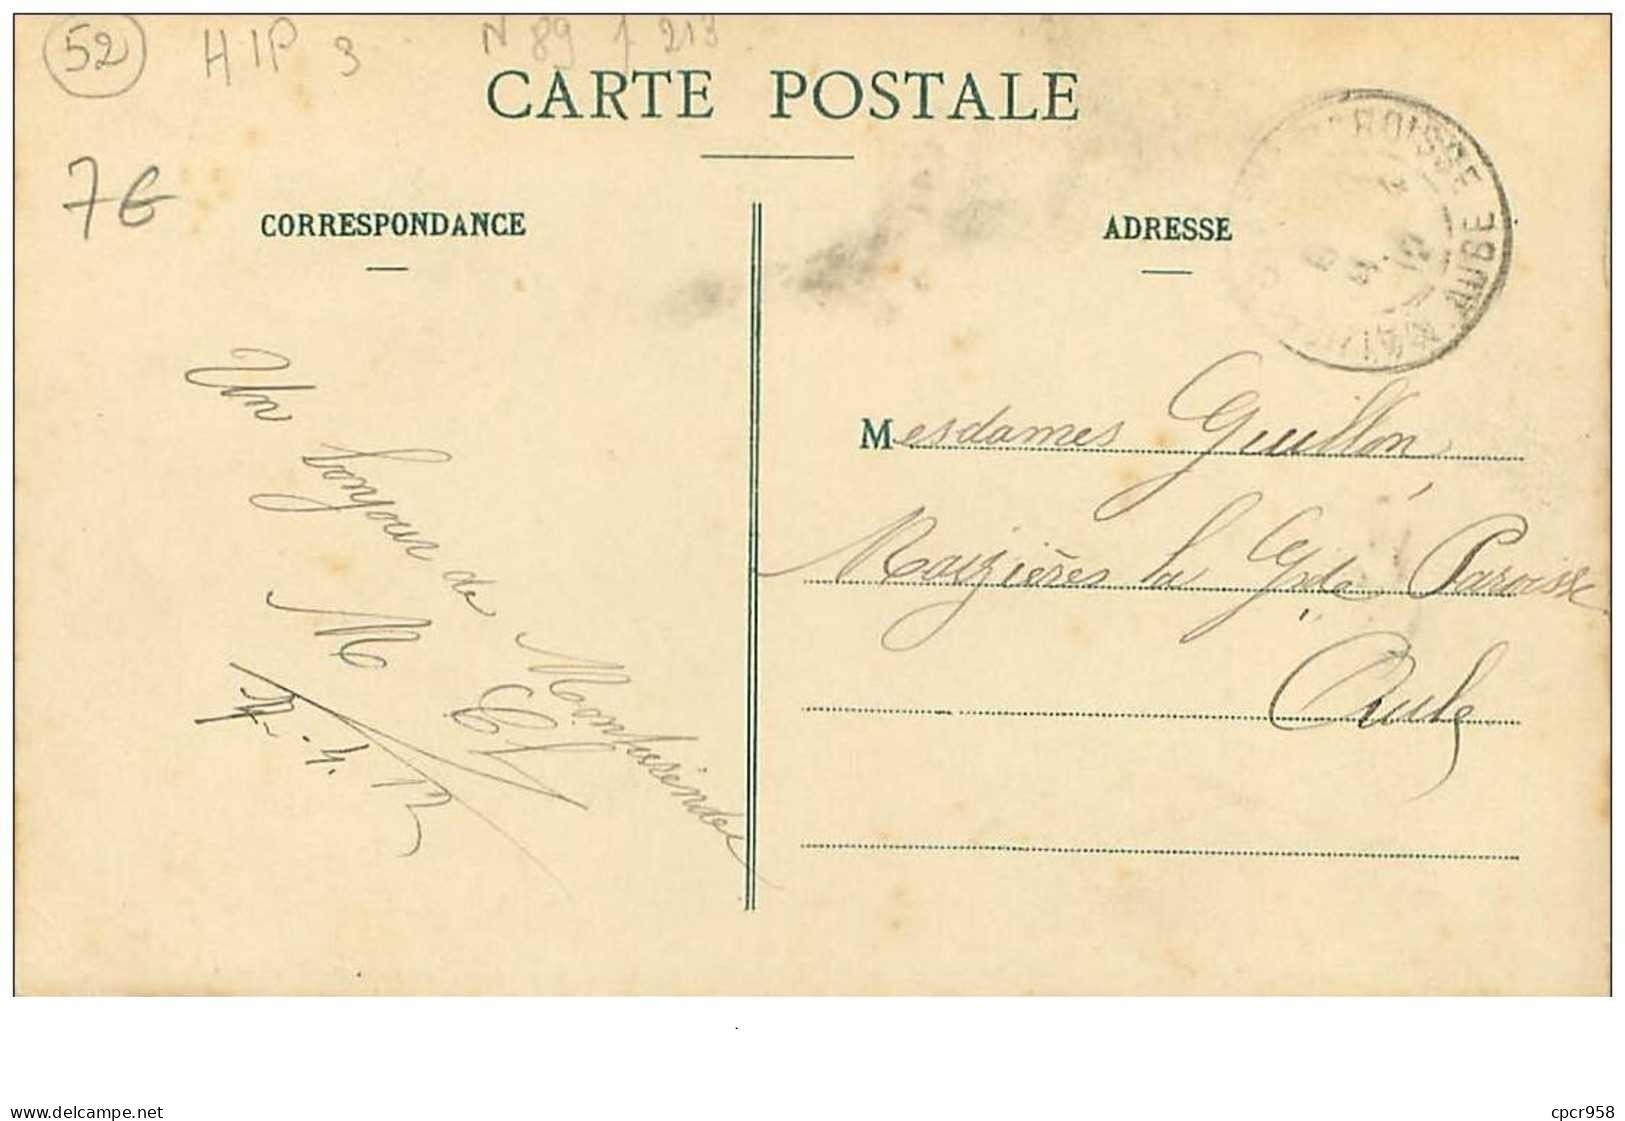 52 HIP 3 N 89 f 213
CARTE POSTALE
7€
CORRESPONDANCE
ADRESSE
ROISSE AUBE
Un
bonjour de
M
4.12
Mesdames Guillon,
Maizières la Gde Paroisse
Aube
www.delcampe.net
cpcr958